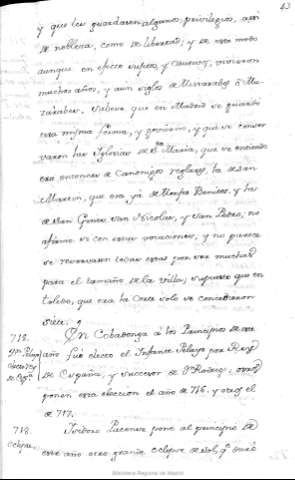 43
y que les guardaron algunos privilegios, asi
de nobleza, como de libertad; y de este modo
aunque en efecto sugetos, y cautivos, vivieron
muchos años, y aun siglos de Mozarabes, ô Mu
zarabes, sabese que en Madrid se guardó
esta misma forma, y govierno, y que se conser
varon las Iglesias de Sta Maria, que se entiende
era entonces de Canonigos reglares, la de San
Martin, que era ya de Monges Benitos, y las
de San Gines, San Nicolas, y San Pedro; no
afirmo si con estas vocaciones, y no parece
se reservaron todas estas por ser muchas
para el tamaño de la Villa, supuesto que en
toledo, que era la Corte solo se conservaron
siete.
718.
Dn Pelayo
electo Rey
de Espª
En Cobadonga á los Principios de este
año fue electo el Infante Pelayo por Rey
de España, y succesor de Dn Rodrigo: otros
ponen esta eleccion el año de 716. y otros el
de 717.
718.
eclipse.
Isidoro Pacense pone al principio de
este año otro grande eclipse de sol, qe duró
Biblioteca Regional de Madrid